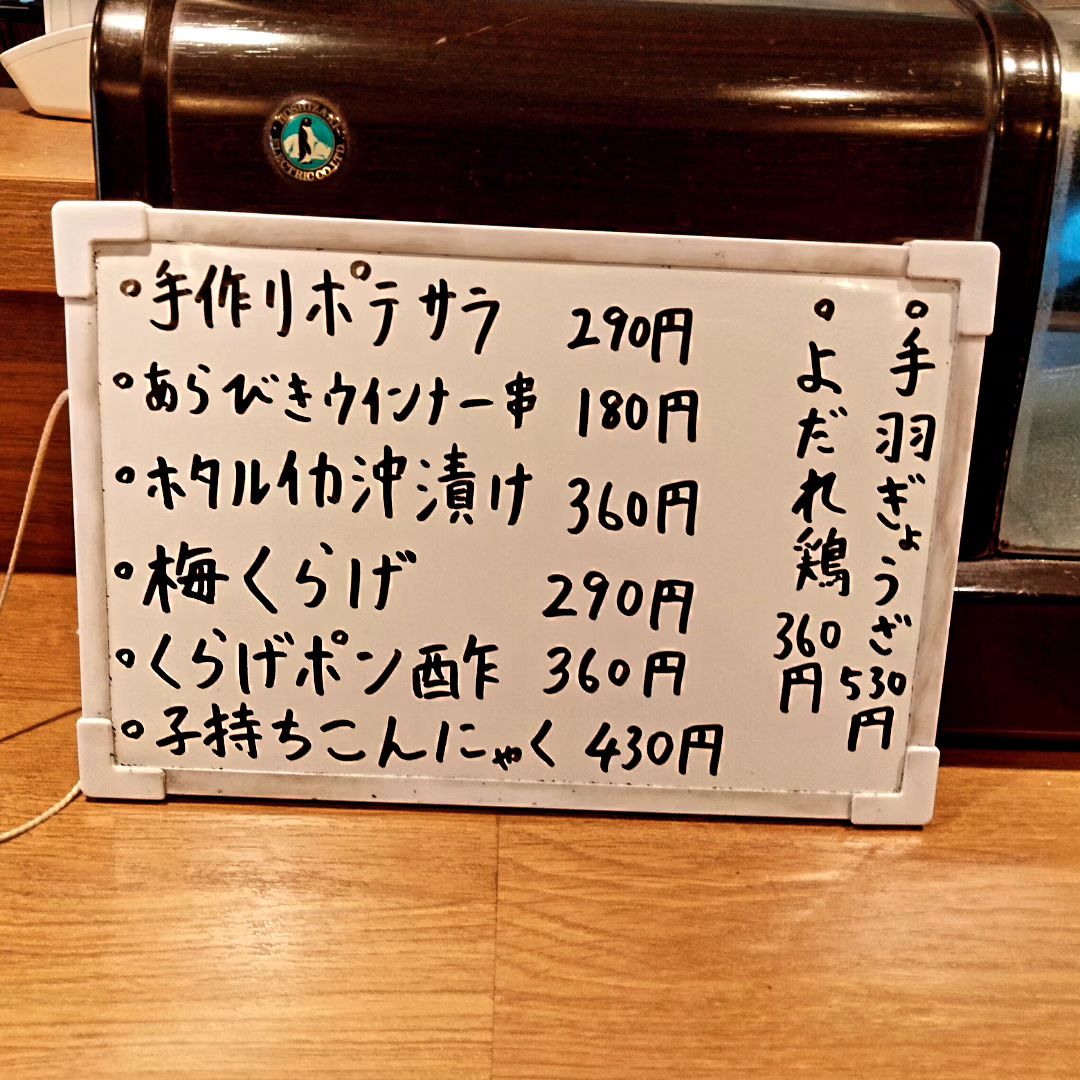 HOSHIZAKI ELECTRIC CO.,LTD
手作りポテサラ 290円
あらびきウインナー串 180円
ホタルイカ沖漬け 360円
梅くらげ 290円
くらげポン酢 360円
子持ちこんにゃく 430円
手羽ぎょうざ 530円
よだれ鶏 360円